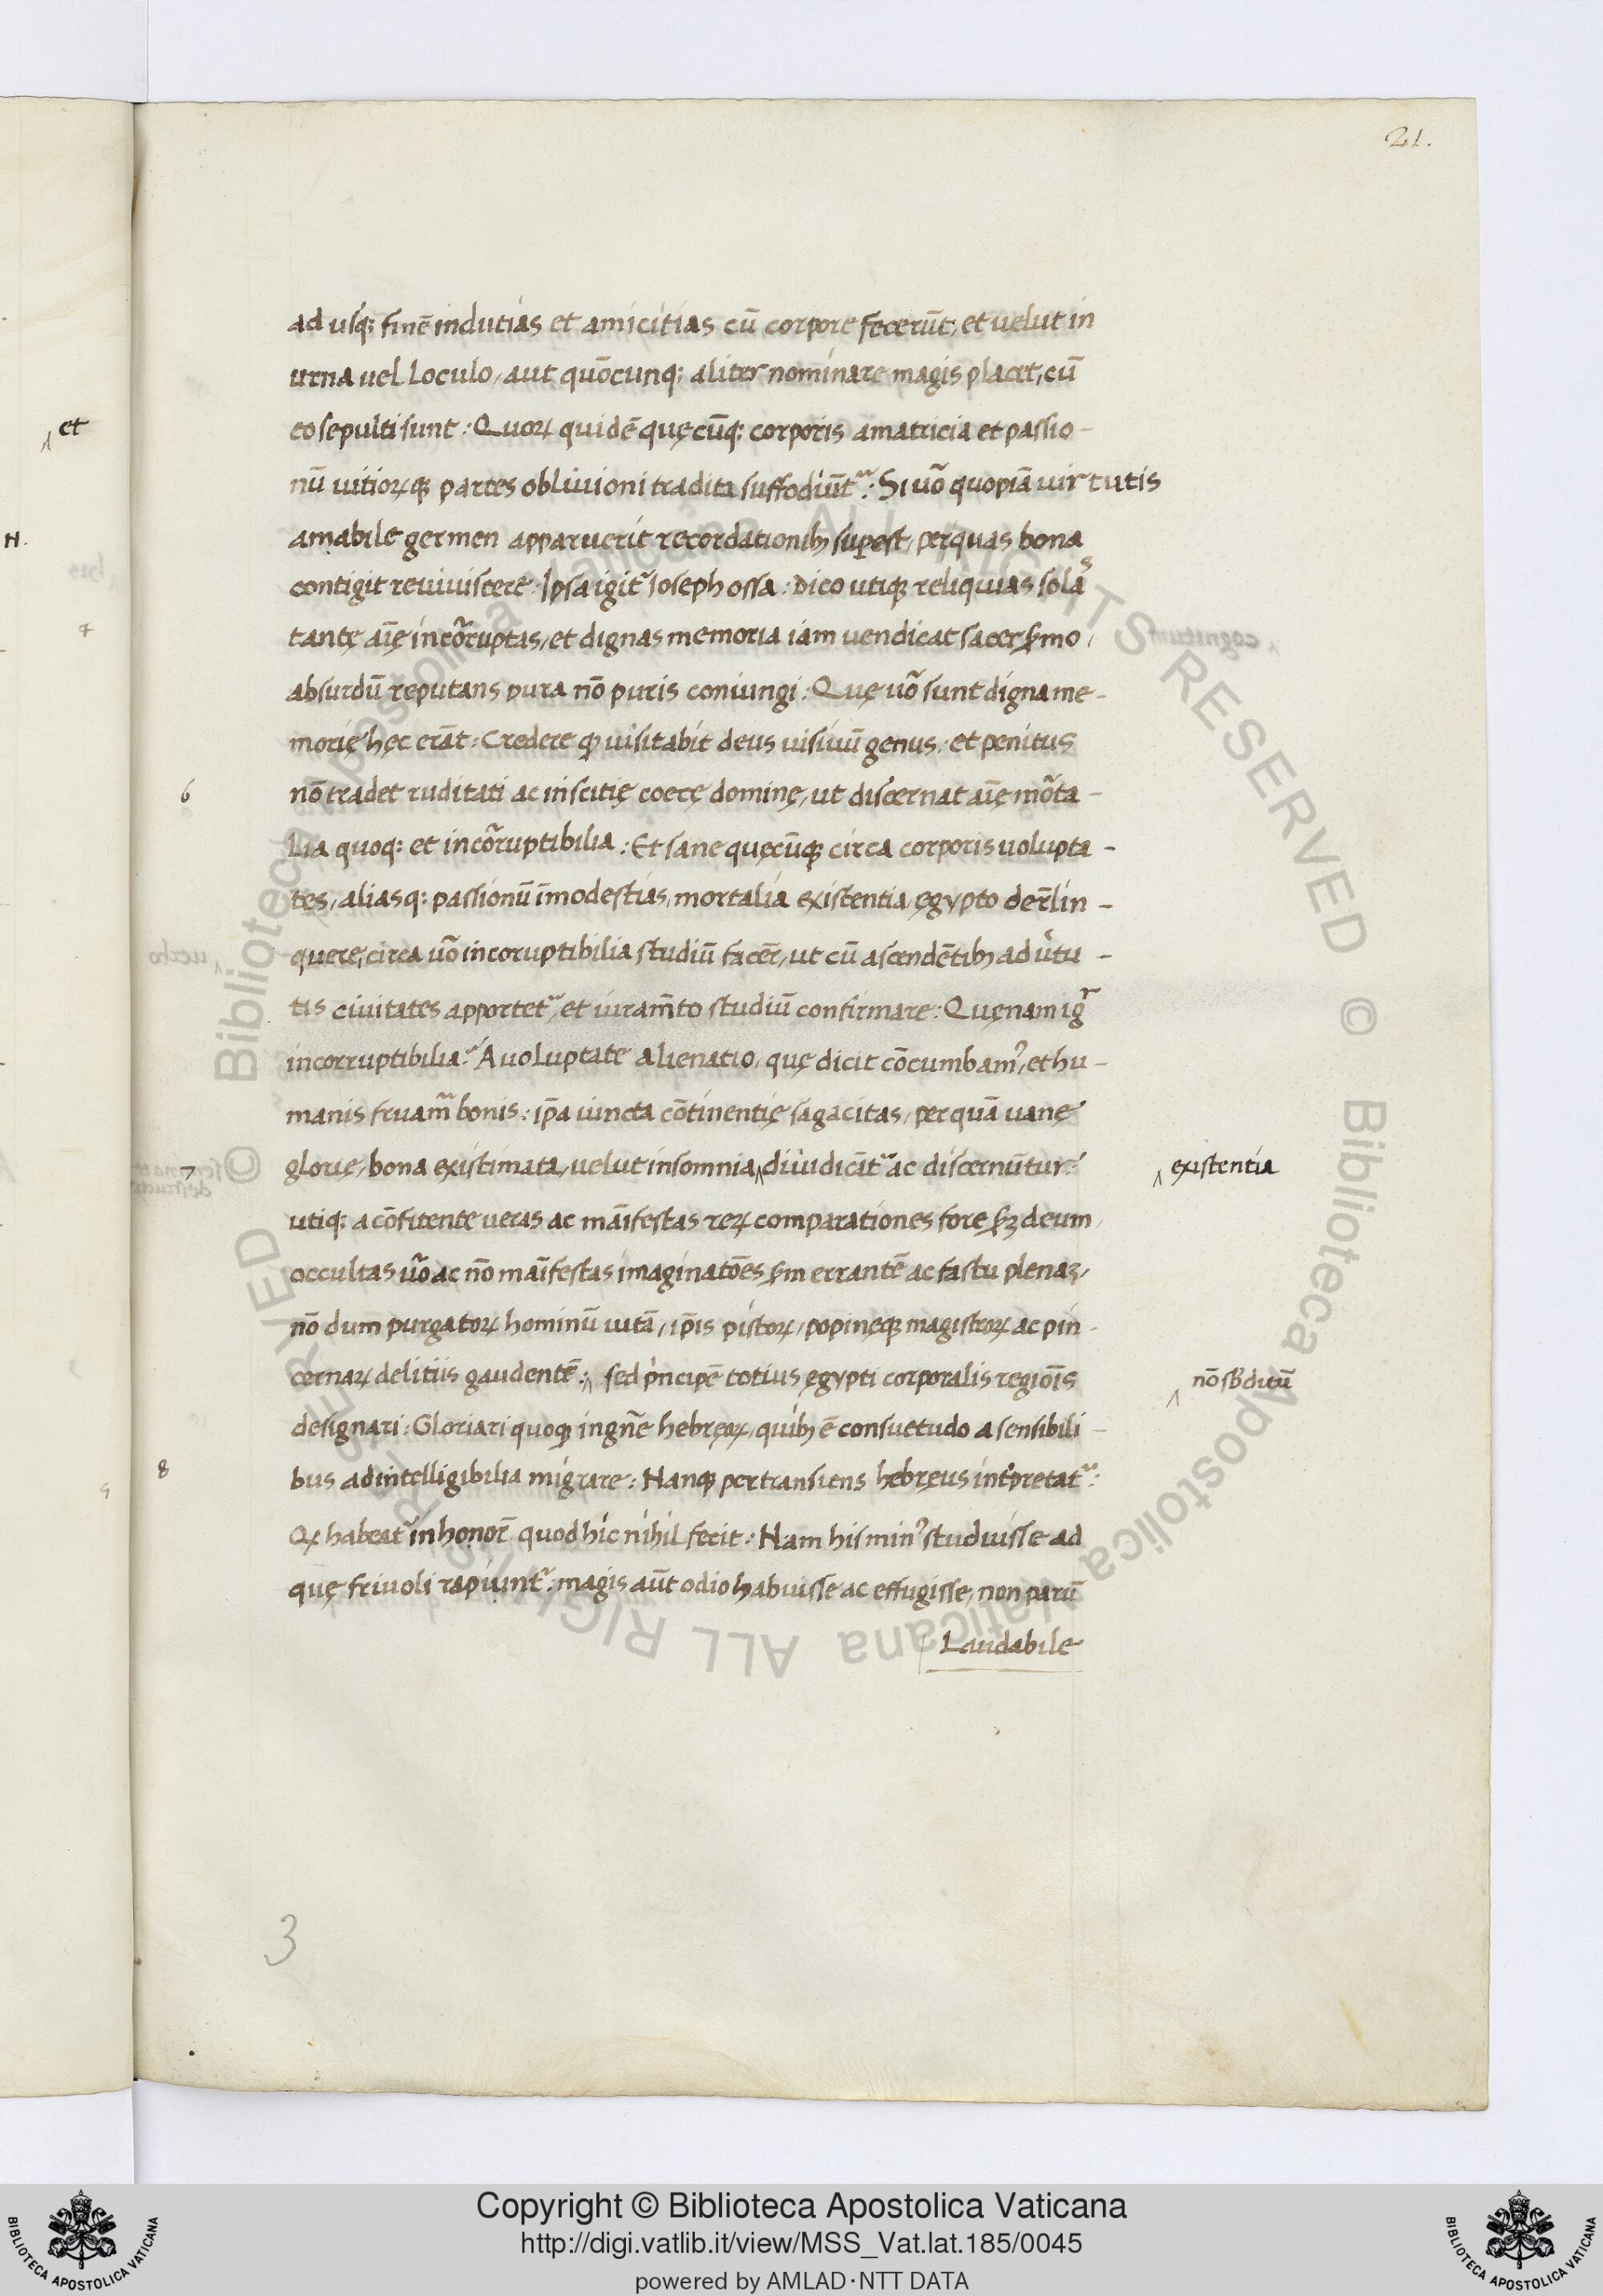 21.
ad usq; finē indutias et amicitias cū corpore fecerūt, et velut in
urna vel loculo, aut quōcunq; aliter nominare magis placet, cū
eo sepulti sunt: Quoꝝ quidē quęcūq; corporis amatricia et passio-
nū vitioꝝqꝫ partes oblivioni tradita suffodiūtᷣ: Si uō quopiā virtutis
amabile germen apparuerit recordationibꝫ supest, per quas bona
contigit reviviscere: Ipsa igitᷣ Ioseph ossa: dico utiqꝫ reliquias solās
tantę aīę incōruptas, et dignas memoria iam vendicat sacer ẜmo,
absurdū reputans pura nō puris coniungi: Quę uō sunt digna me-
morię hęc erāt: Credere ꝙ visitabit deus visivū genus: et penitus
6 nō tradet ruditati ac inscitię coecę dominę, ut discernat aīę mōta-
lia quoq: et incōruptibilia: Et sane quęcūqꝫ circa corporis volupta-
tes, aliasq: passionū īmodestias, mortalia existentia, ęgypto der̄lin-
quere, circa uō incoruptibilia studiū facer̄, ut cū ascendētibꝫ ad ůtu-
tis civitates apportetᷣ, et iuram̄to studiū confirmare: Quęnam igr̄
incorruptibilia: A voluptate alienatio, quę dicit cōcumbamꝰ, et hu-
manis fruamᷣ bonis: ip̄a iuncta cōtinentię sagacitas, per quā vanę
7 glorię, bona existimata, velut insomnia ‸ diiudicātᷣ ac discernūtur:
‸ existentia
utiq; a cōfitente veras ac māifestas reꝝ comparationes fore ẜꝫ deum,
occultas uō ac nō māifestas imaginatōes ẜm errantē ac fastu plenaꝫ,
nō dum purgatoꝝ hominū vitā, ip̄is pistoꝝ, popinęqꝫ magistroꝝ ac pin-
cernaꝝ delitiis gaudentē: ‸ sed pͥncipē totius ęgypti corporalis regiōis
‸ nō sb̄ditū
designari: Gloriari quoqꝫ in gn̄e hebręoꝝ, quibꝫ ē consuetudo a sensibili-
8 bus ad intelligibilia migrare: Nanqꝫ pertransiens hebręus int̓pretatᷣ:
Qꝝ habeatᷣ in honor̄ quod hic nihil fecit: Nam his minꝰ studuisse ad
quę frivoli rapiuntᷣ: magis aūt odio habuisse ac effugisse, non parū
Laudabile
3
‸ et
N.
Copyright © Biblioteca Apostolica Vaticana
http://digi.vatlib.it/view/MSS_Vat.lat.185/0045
powered by AMLAD·NTT DATA